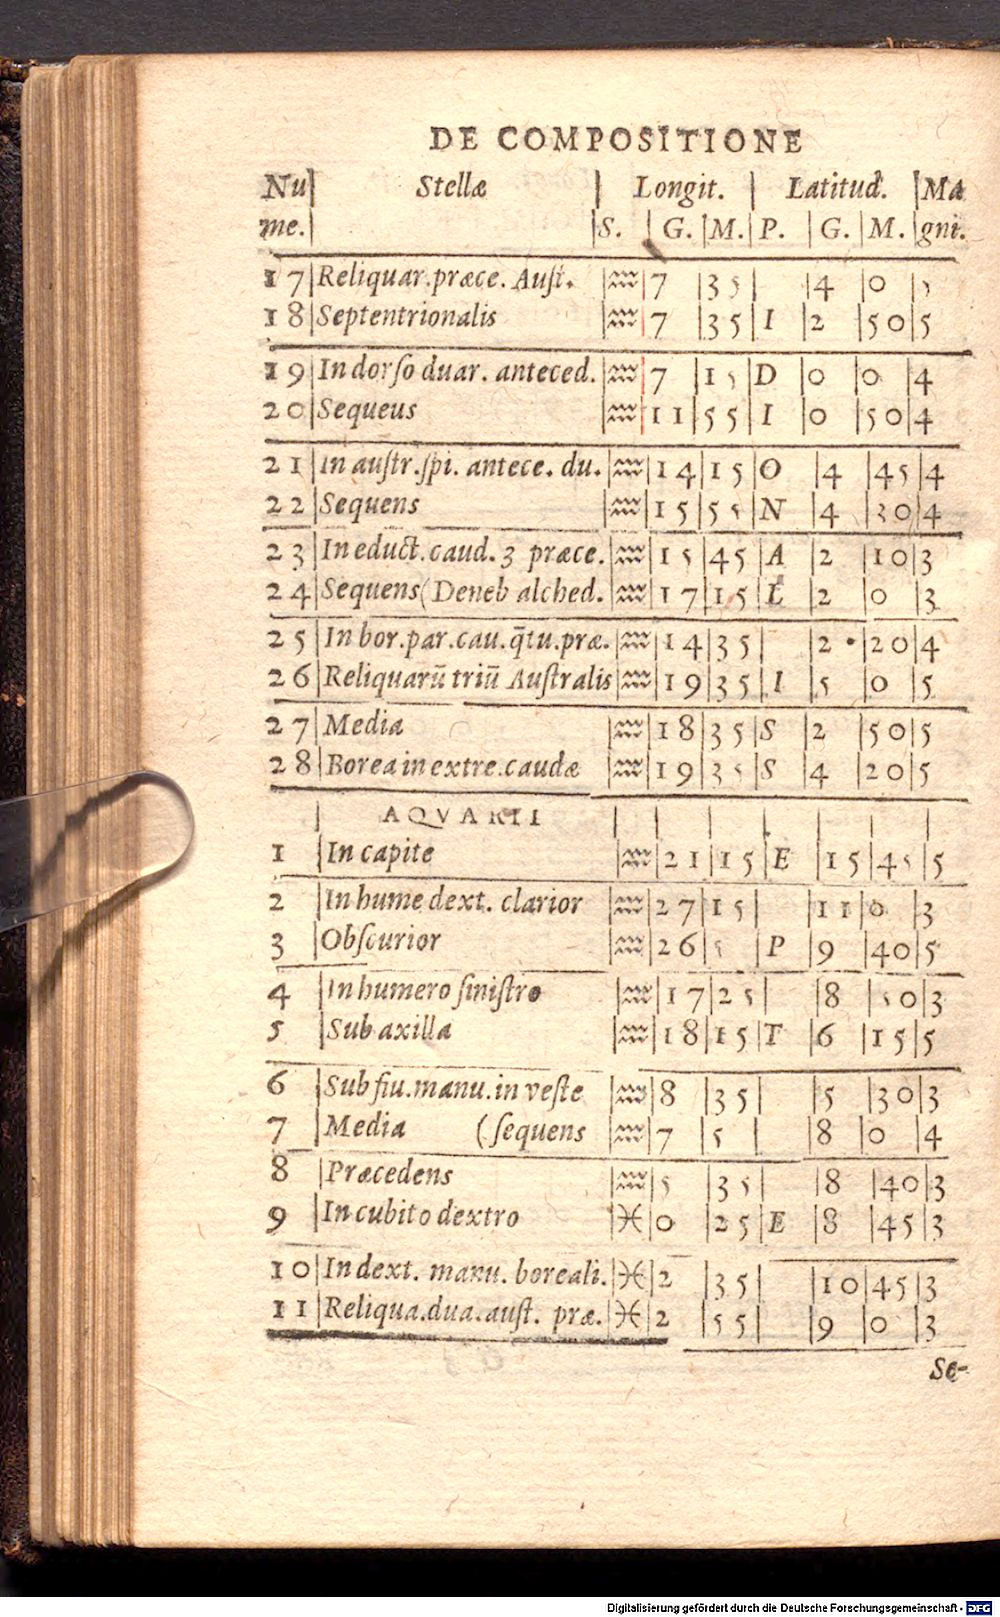 DE COMPOSITIONE
Nu| Stellæ | Longit. | Latitud. |Ma
me.| |S. |G.|M.|P. |G.|M.|gni.
17|Reliquar.præce. Auſt.|♒|7 |35| |4 |0 |5
18|Septentrionalis |♒|7 |35|I |2 |50|5
19|In dorſo duar. anteced.|♒|7 |15|D |0 |0 |4
20|Sequeus |♒|11|55|I |0 |50|4
21|In auſtr.ſpi. antece. du.|♒|14|15|O |4 |45|4
22|Sequens |♒|15|55|N |4 |30|4
23|In educt.caud.3 præce.|♒|15|45|A |2 |10|3
24|Sequens(Deneb alched.|♒|17|15|L |2 |0 |3
25|In bor.par.cau.q̄tu.præ.|♒|14|35| |2 |20|4
26|Reliquarū triū Auſtralis|♒|19|35|I |5 |0 |5
27|Media |♒|18|35|S |2 |50|5
28|Borea in extre.caudæ |♒|19|35|S |4 |20|5
| AQVARII | | | | | |
1 |In capite |♒|21|15|E |15|45|5
2 |In hume dext. clarior |♒|27|15| |11|0 |3
3 |Obſcurior |♒|26|5 |P |9 |40|5
4 |In humero ſiniſtro |♒|17|25| |8 |50|3
5 |Sub axilla |♒|18|15|T |6 |15|5
6 |Sub ſiu.manu.in veſte |♒|8 |35| |5 |30|3
7 |Media (ſequens |♒|7 |5 | |8 |0 |4
8 |Præcedens |♒|5 |35| |8 |40|3
9 |In cubito dextro |♓|0 |25|E |8 |45|3
10|In dext. manu. boreali.|♓|2 |35| |10|45|3
11|Reliqua.dua.auſt. præ.|♓|2 |55| |9 |0 |3
Se-
Digitalisierung gefördert durch die Deutsche Forschungsgemeinschaft - DFG